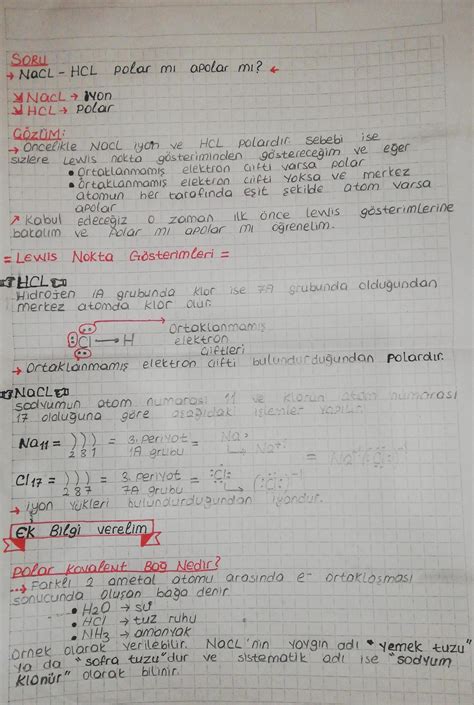 SORU
→ NaCL - HCL polar mı apolar mı? ←
NaCL → iyon
HCL → polar
ÇÖZÜM:
→ Öncelikle NaCL iyon ve HCL polardır sebebi ise
sizlere Lewis nokta gösteriminden göstereceğim ve eğer
• Ortaklanmamış elektron çifti varsa polar
• Ortaklanmamış elektron çifti yoksa ve merkez
atomun her tarafında eşit şekilde atom varsa
apolar
↗ Kabul edeceğiz o zaman ilk önce lewis gösterimlerine
bakalım ve polar mı apolar mı öğrenelim.
= Lewis Nokta Gösterimleri =
HCL
Hidrojen 1A grubunda klor ise 7A grubunda olduğundan
merkez atomda klor olur.
Cl → H
ortaklanmamış
elektron
çiftleri
→ Ortaklanmamış elektron çifti bulundurduğundan polardır.
NaCL
sodyumun atom numarası 11 ve klorun atom numarası
17 olduğuna göre aşağıdaki işlemler yapılır.
Na11 = ) ) ) = 3. periyot = Na•
2 8 1 1A grubu → Na+1
Cl17 = ) ) ) = 3. periyot = :Cl:
2 8 7 7A grubu → (:Cl:)-1
= Na+1 (:Cl:)-1
→ iyon yükleri bulundurduğundan iyondur.
EK Bilgi verelim
Polar Kovalent Bağ Nedir?
→ Farklı 2 ametal atomu arasında e- ortaklaşması
sonucunda oluşan bağa denir.
• H2O → su
• HCl → tuz ruhu
• NH3 → amonyak
örnek olarak verilebilir. NaCL'nin yaygın adı "yemek tuzu"
ya da "sofra tuzu"dur ve sistematik adı ise "sodyum
klorür" olarak bilinir.